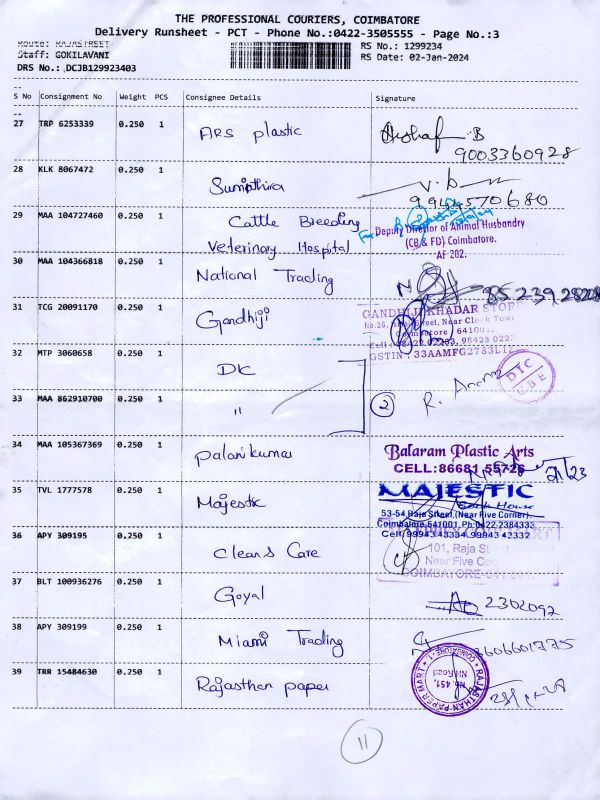 THE PROFESSIONAL COURIERS, COIMBATORE
Delivery Runsheet - PCT - Phone No.:0422-3505555 - Page No.:3
Route: RAJASTREET RS No.: 1299234
Staff: GOKILAVANI RS Date: 02-Jan-2024
DRS No.: DCJB129923403
S No Consignment No Weight PCS Consignee Details Signature
27 TRP 6253339 0.250 1 ARS plastic
9003360928
28 KLK 8067472 0.250 1 Sumithira
29 MAA 104727460 0.250 1 Cattle Breeding
Veterinary Hospital
Deputy Director of Animal Husbandry
(CB & FD) Coimbatore.
AF 202.
30 MAA 104366818 0.250 1 National Trading
31 TCG 20091170 0.250 1 Gandhiji
GANDHIJI KHADAR STORE
GSTIN : 33AAMFG2783L1Z
32 MTP 3060658 0.250 1 DK
33 MAA 862910700 0.250 1 "
2
DTC
34 MAA 105367369 0.250 1 palanikumar
Balaram Plastic Arts
CELL: 86681 55726
35 TVL 1777578 0.250 1 Majestic
MAJESTIC
Book House
53-54, Raja Street, (Near Five Corner)
Coimbatore-641001, Ph:0422-2384333
Cell: 99943 43334, 99943 42332
36 APY 309195 0.250 1 Clean & Care
101, Raja Street
Near Five Cor
COIMBATORE-641 001.
37 BLT 100936276 0.250 1 Goyal
2302092
38 APY 309199 0.250 1 Miami Trading
39 TRR 15484630 0.250 1 Rajasthan paper
RAJASTHAN PAPER MART
COIMBATORE - 1
No. 451,
NH Road
11